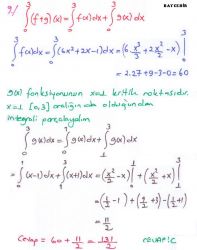 RAYCEBİR
9/ ∫₀³ (f+g)(x) = ∫₀³ f(x)dx + ∫₀³ g(x)dx
∫₀³ f(x)dx = ∫₀³ (6x²+2x-1)dx = (6·x³/3 + 2x²/2 - x)|₀³
= 2.27+9-3-0=60
g(x) fonksiyonunun x=1 kritik noktasıdır.
x=1 [0,3] aralığında olduğundan
integrali parçalayalım
∫₀³ g(x)dx = ∫₀¹ g(x)dx + ∫₁³ g(x)dx
= ∫₀¹ (x-1)dx + ∫₁³ (x+1)dx = (x²/2 - x)|₀¹ + (x²/2 + x)|₁³
= (1/2 - 1) + (9/2 + 3) - (1/2 + 1)
= 11/2
Cevap = 60 + 11/2 = 131/2 CEVAP:C